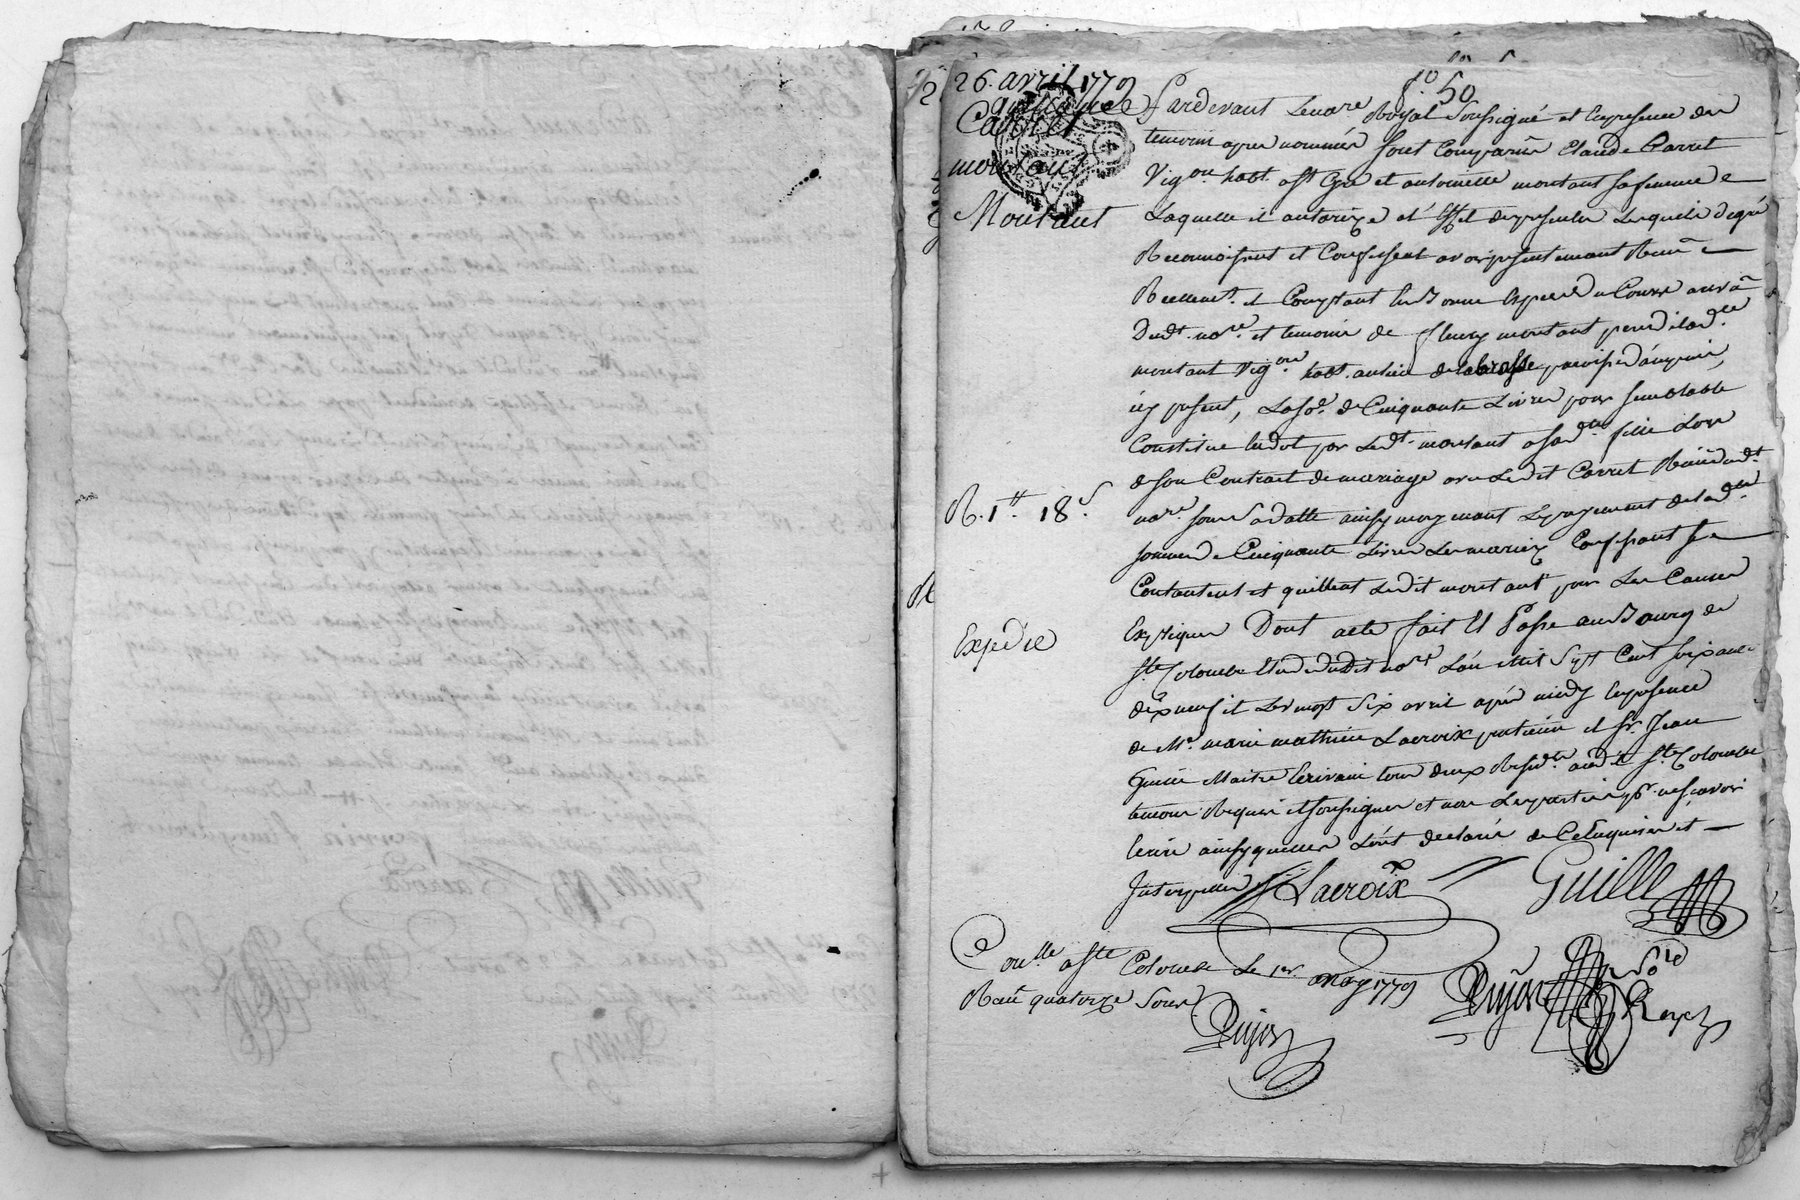 26. avril 1779
quittance
Carret
montant
Montant
fo. 50
Pardevant Le no.re Royal soussigné et En presence des
temoins apres nommés sont Comparus Claude Carret
Vig.on habt. a st Cyr et antoinette montant sa femme
Laquelle il authorize a L'effet des presentes Lesquels de gré
Reconnoissent et Confessent avoir presentement Recu
Reellem.t et Comptant En Bonne Espece du Cours au vû
Dud.t no.re et temoins de fleury montant pere de lad.te
montant Vig.on habt. au lieu de labrosse paroisse d'ampuis,
icy present, La so.e de Cinquante Livres pour semblable
Constituée En dot par Led.t montant a sad.te fille Lors
de son Contrat de mariage avec Ledit Carret Recû dud.t
no.re sous sa datte ainsy moyennant Le payement de lad.te
somme de Cinquante Livres Les mariez Confessant se
Contentent et quittent Ledit montant pour Les Causes
R. 1tt 18s.
Expliquées Dont acte fait Et Passé au Bourg de
Expedié
ste Colombe Etude dudit no.re L'an Mil Sept Cent soixante
dix neuf et Le vingt Six avril après midy En presence
de Me. marie mathieu Lacroix praticien et sr. Jean
Guille Maitre Ecrivain tous deux Resid.ts aud.it ste Colombe
temoins Requis et soussignés et non Les parties p.r ne sçavoir
Ecrire ainsy quelles L'ont declaré de Ce Enquises et
Interpellées Lacroix Guille
Con.lle a ste Colombe Le 1er. may 1779
Recû quatorze sous
Dujon
Dujon
No.re
Royal